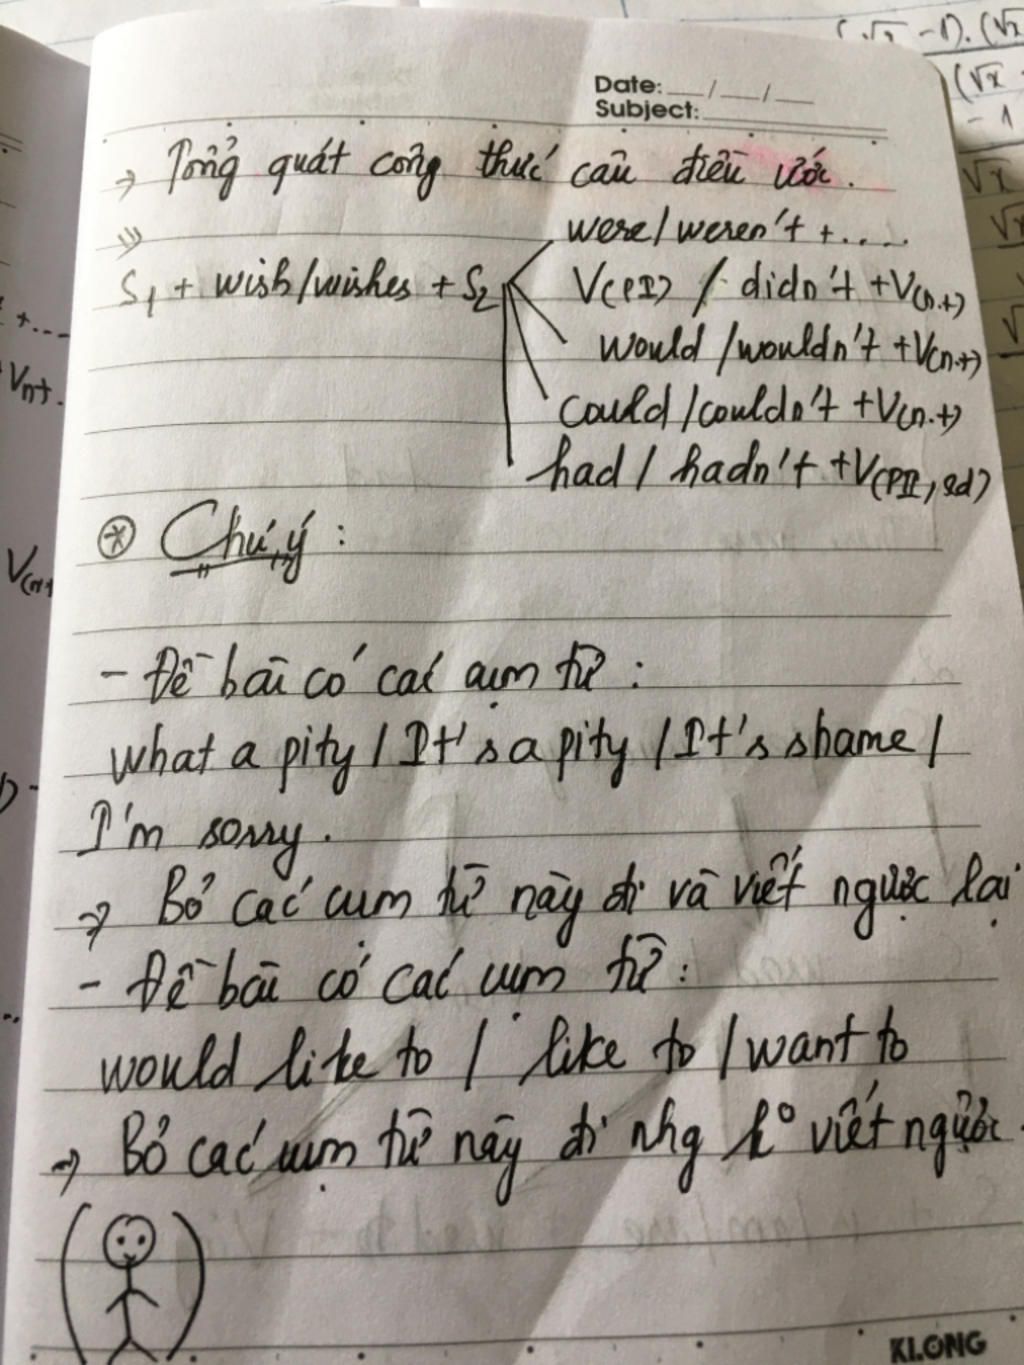 (√x -1).(√x
(√x
- 1
√x
√x
√
Date: __/__/__
Subject:
→ Tổng quát công thức câu điều ước.
=>
S1 + wish/wishes + S2
were/weren't + .....
V(PI) / didn't + V(n.t)
would /wouldn't + V(n.t)
could /couldn't + V(n.t)
had / hadn't + V(PII, ed)
+...
Vnt.
V(nt
⊛ Chú ý :
- Đề bài có các cụm từ :
What a pity / It's a pity / It's shame /
I'm sorry.
→ Bỏ các cụm từ này đi và viết ngược lại
- Đề bài có các cụm từ :
would like to / like to / want to
→ Bỏ các cụm từ này đi nhg k° viết ngược.
KLONG